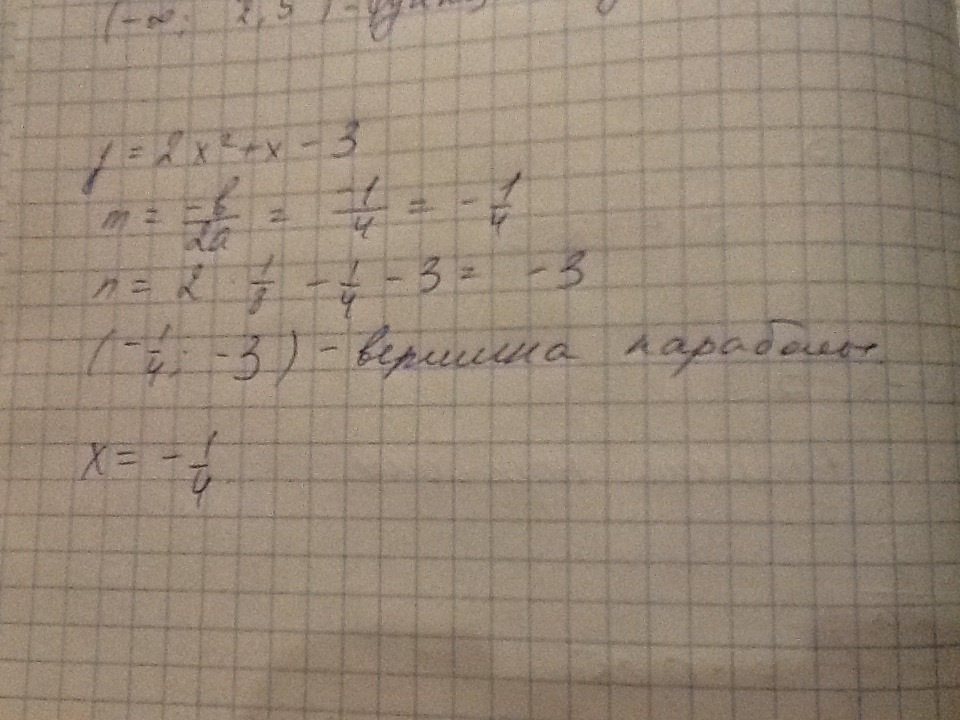 (-∞; 2,5)
y = 2x² + x - 3
m = -b/2a = -1/4 = -1/4
n = 2 · 1/8 - 1/4 - 3 = -3
(-1/4; -3) - вершина параболы
x = -1/4